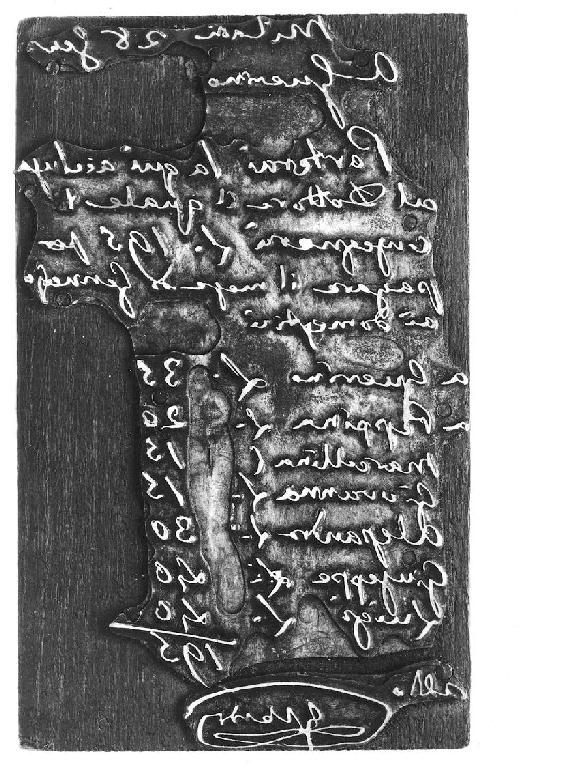 Milano 28 Gen
A Guerino
Porterai la qui acclusa
al Dottore il quale ti
consegnerà L. 195 per
pagare il mese di Gennajo
ai domestici
a Guerino L. 35
a Peppina L. 20
Marcellina L. 15
Giovanna L. 15
Alessandro L. 30
Giuseppe L. 40
Luigi L. 40
195
G Verdi